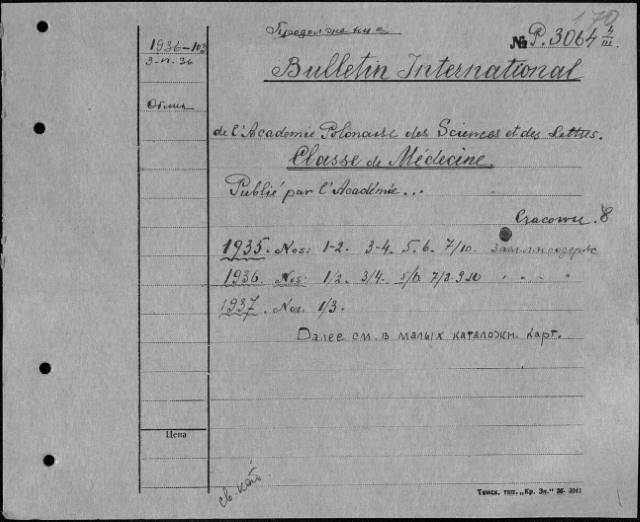 Продолжение
170
1936-103
3-VI-36
№ P.3064 4/III.
Bulletin International
de l'Academie Polonaise des Sciences et des Lettres.
Classe de Médecine.
Publié par l'Académie...
Cracovie. 8
1935. Nos: 1-2. 3-4. 5.6. 7/10
1936. Nos: 1/2. 3/4. 5/6. 7/8. 9.10 " " "
1937. Nos. 1/3.
Далее см. в малых каталожн. карт.
Цена
св. кат.
Тинск. тип. „Кр. Зн.“ 36